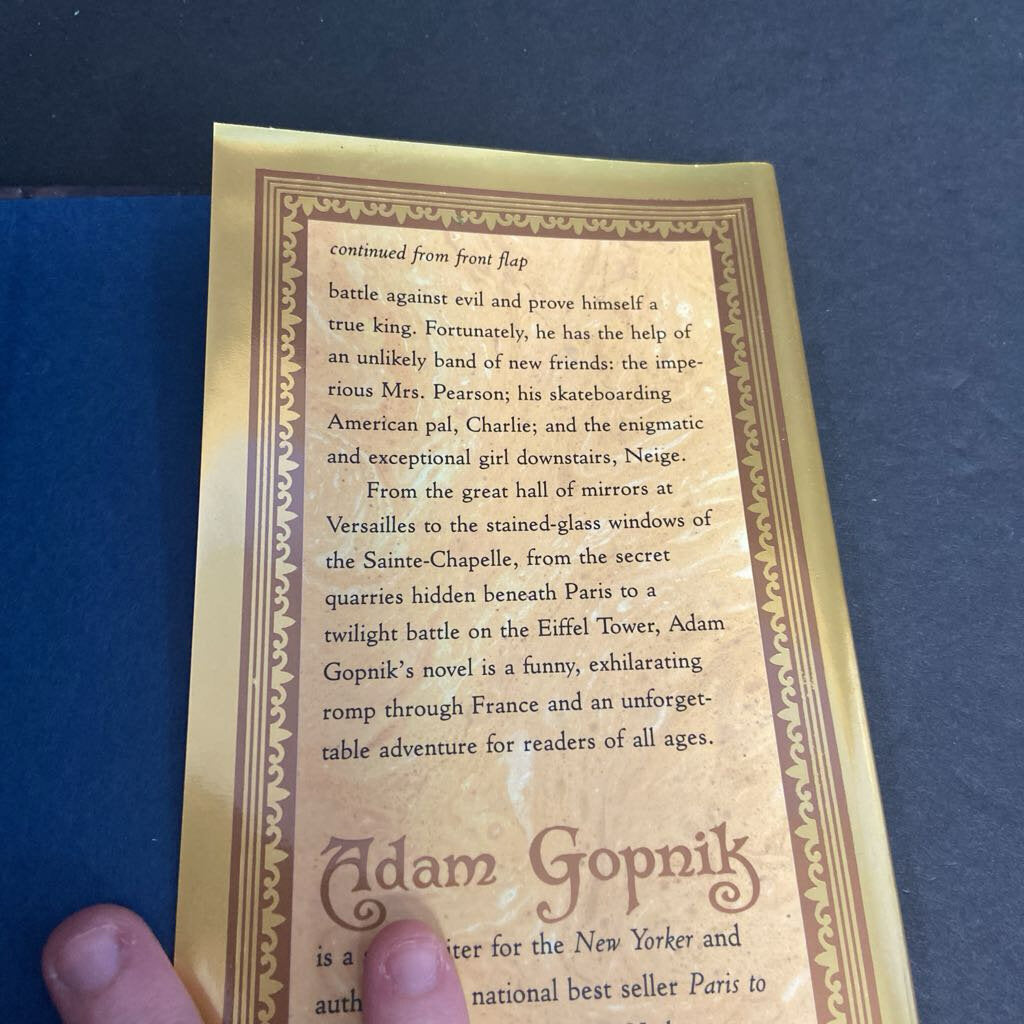 continued from front flap
battle against evil and prove himself a
true king. Fortunately, he has the help of
an unlikely band of new friends: the impe-
rious Mrs. Pearson; his skateboarding
American pal, Charlie; and the enigmatic
and exceptional girl downstairs, Neige.
From the great hall of mirrors at
Versailles to the stained-glass windows of
the Sainte-Chapelle, from the secret
quarries hidden beneath Paris to a
twilight battle on the Eiffel Tower, Adam
Gopnik's novel is a funny, exhilarating
romp through France and an unforget-
table adventure for readers of all ages.
Adam Gopnik
is a for the New Yorker and
national best seller Paris to